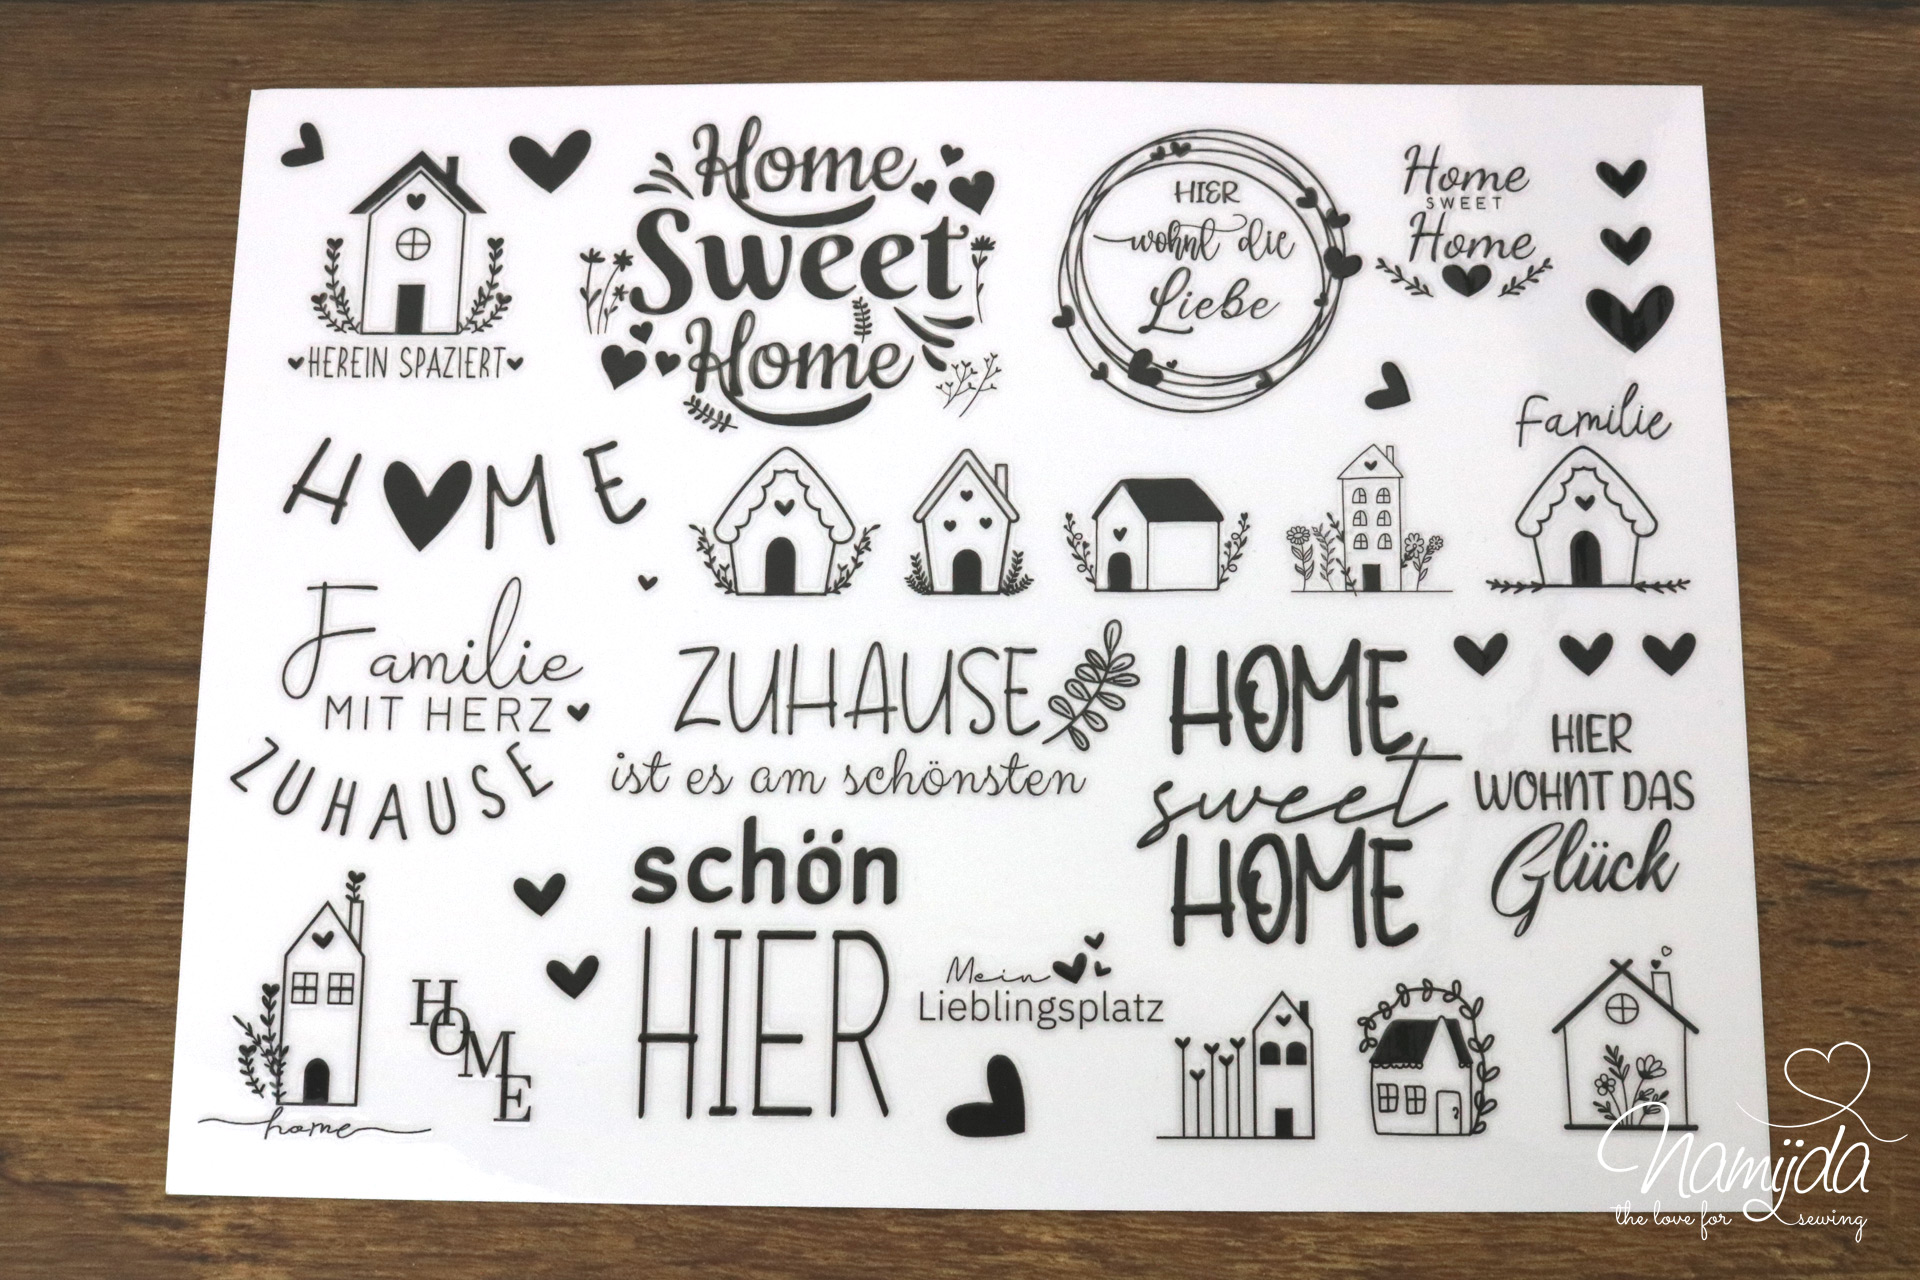 HEREIN SPAZIERT
Home
Sweet
Home
HIER
wohnt die
Liebe
Home
SWEET
Home
H ME
Familie
Familie
MIT HERZ
ZUHAUSE
ZUHAUSE
ist es am schönsten
HOME
sweet
HOME
HIER
WOHNT DAS
Glück
schön
HIER
Mein
Lieblingsplatz
home
HOME
Namijda
the love for sewing